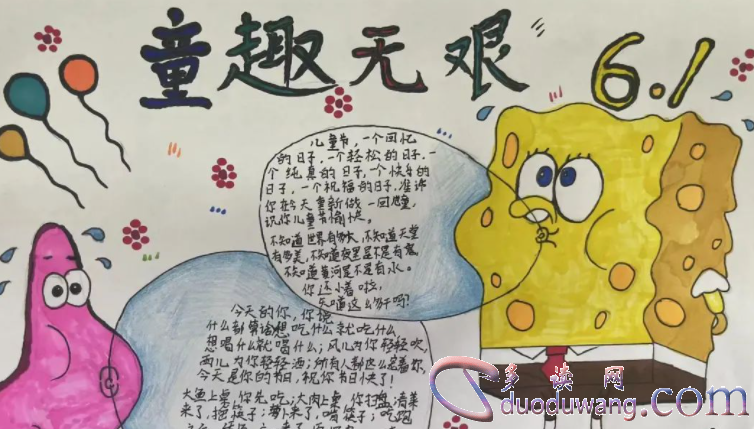 童趣无艰
6.1
儿童节,一个回忆
的日子,一个轻松的日子,一
个纯真的日子,一个快乐的
日子,一个祝福的日子,准许
你在今天重新做一回儿童,
祝你儿童节愉快。
不知道世界有多大,不知道天堂
有多美,不知道夜里是不是有鬼,
不知道黄河是不是有水。
你还小着啦,
知道这么多干吗?
今天的你,你
什么都算,想吃什么就吃什么
想喝什么就喝什么;风儿为你轻轻吹,
雨儿为你轻轻洒;所有人都这么
今天是你的节日,祝你节日快乐!
大鱼上桌,你先吃;大肉上桌,你扫盘;清菜
来了,摇筷子;萝卜来了,喝筷子;吃饱
多读网
duoduwang.com